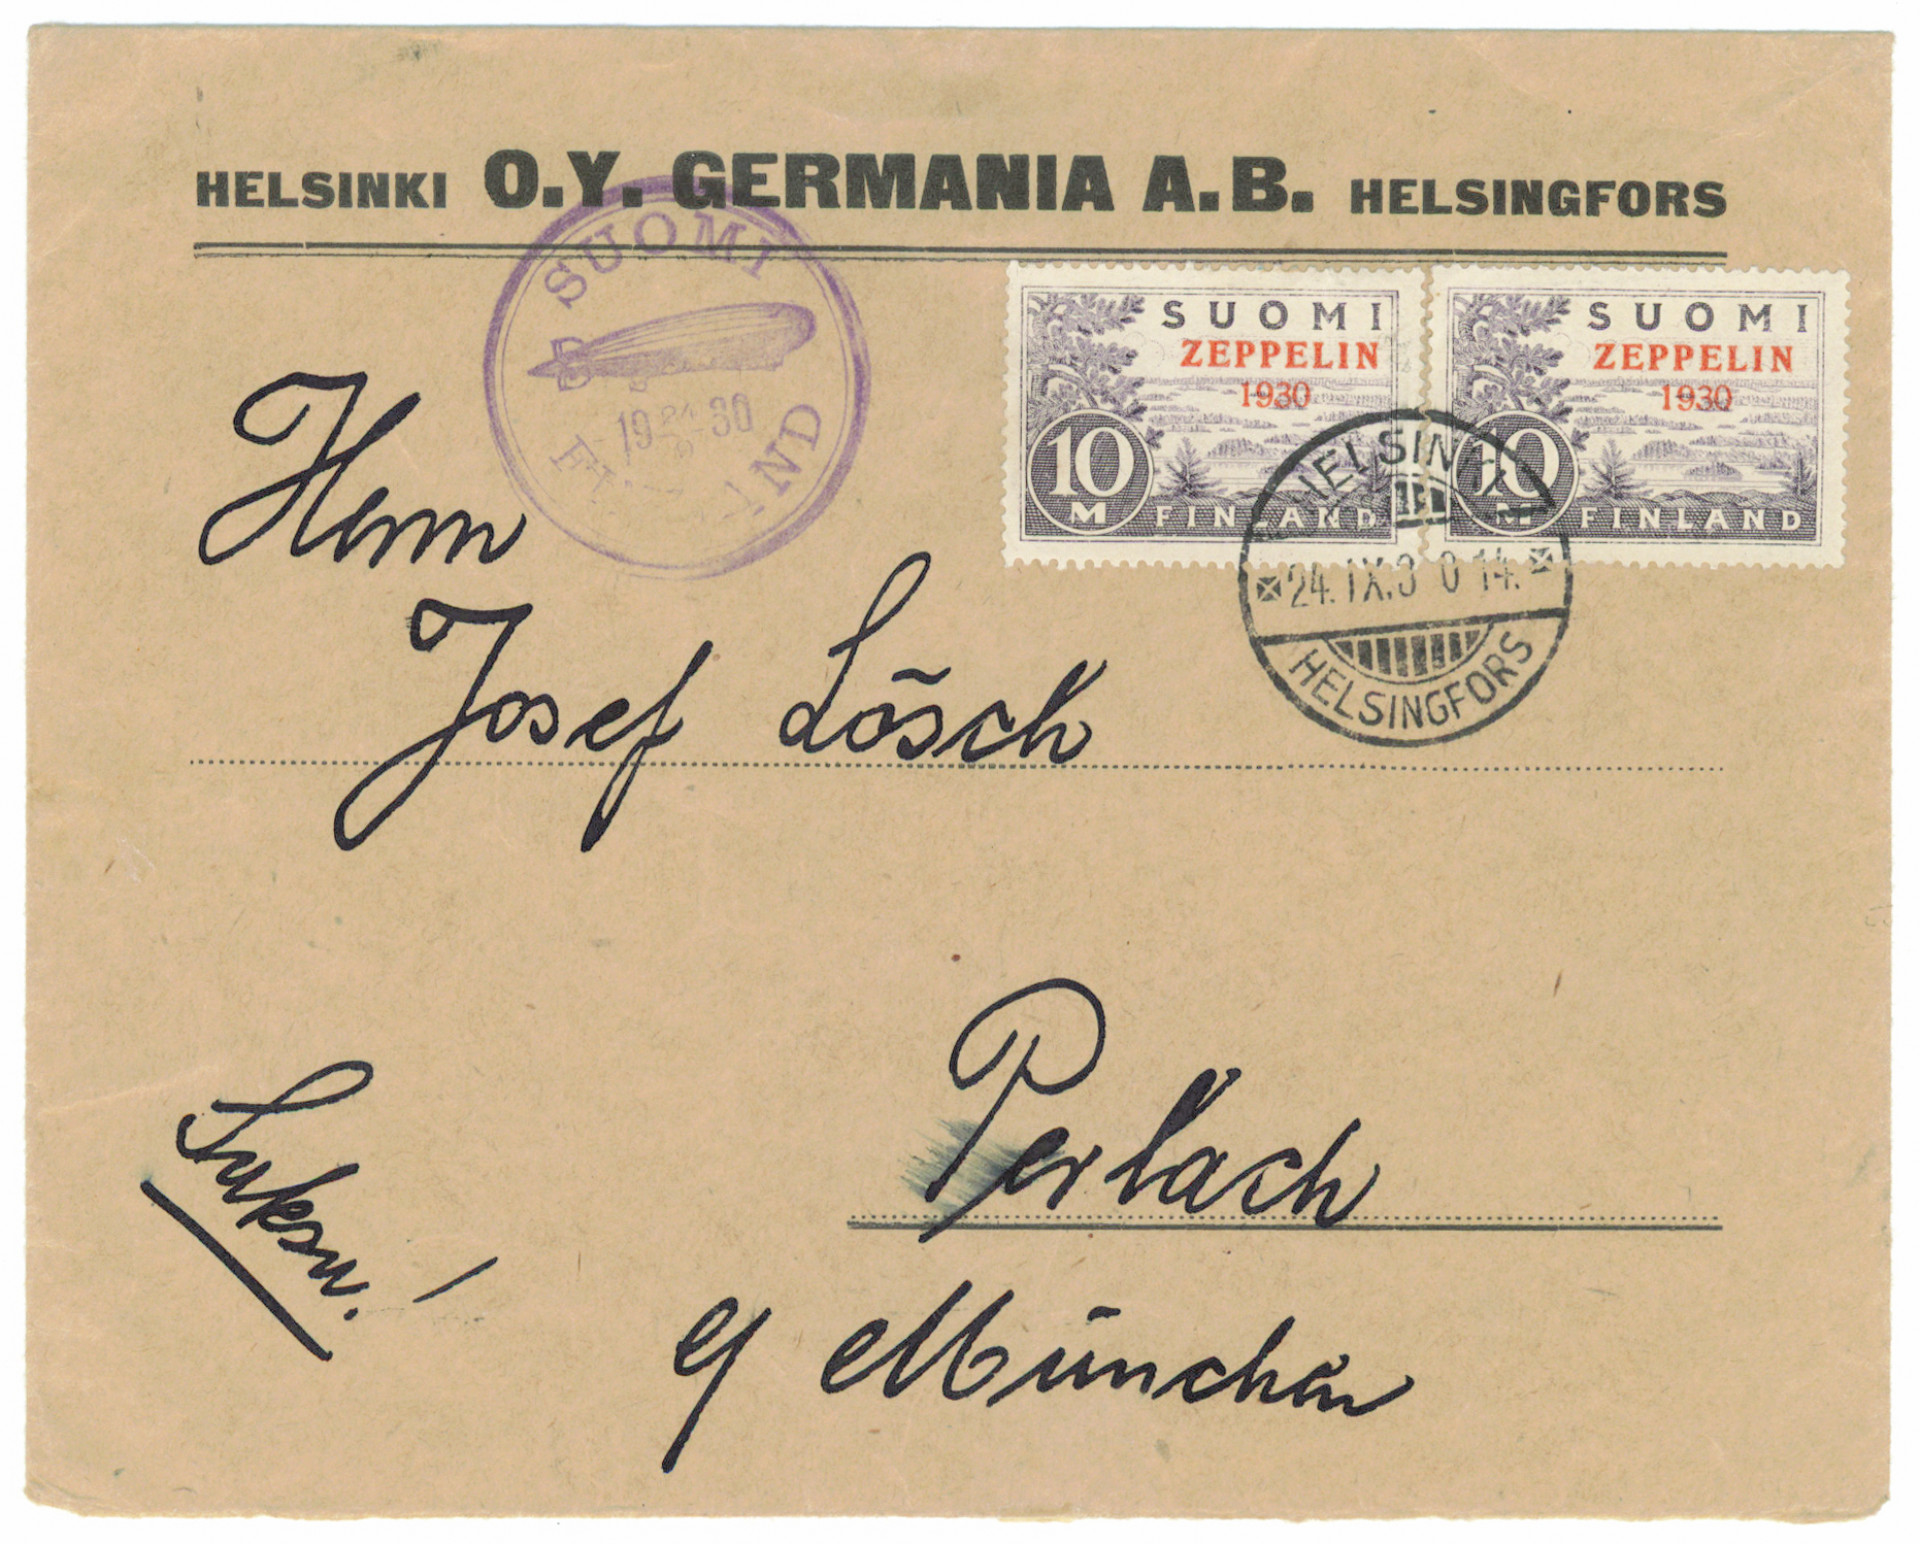 HELSINKI O.Y. GERMANIA A.B. HELSINGFORS
SUOMI
19 24 30
SUOMI
ZEPPELIN
1930
10
M
FINLAND
SUOMI
ZEPPELIN
1930
10
M
FINLAND
HELSINKI
24.IX.30 14.
HELSINGFORS
Herrn
Josef Lösch
Perlach
b/ München